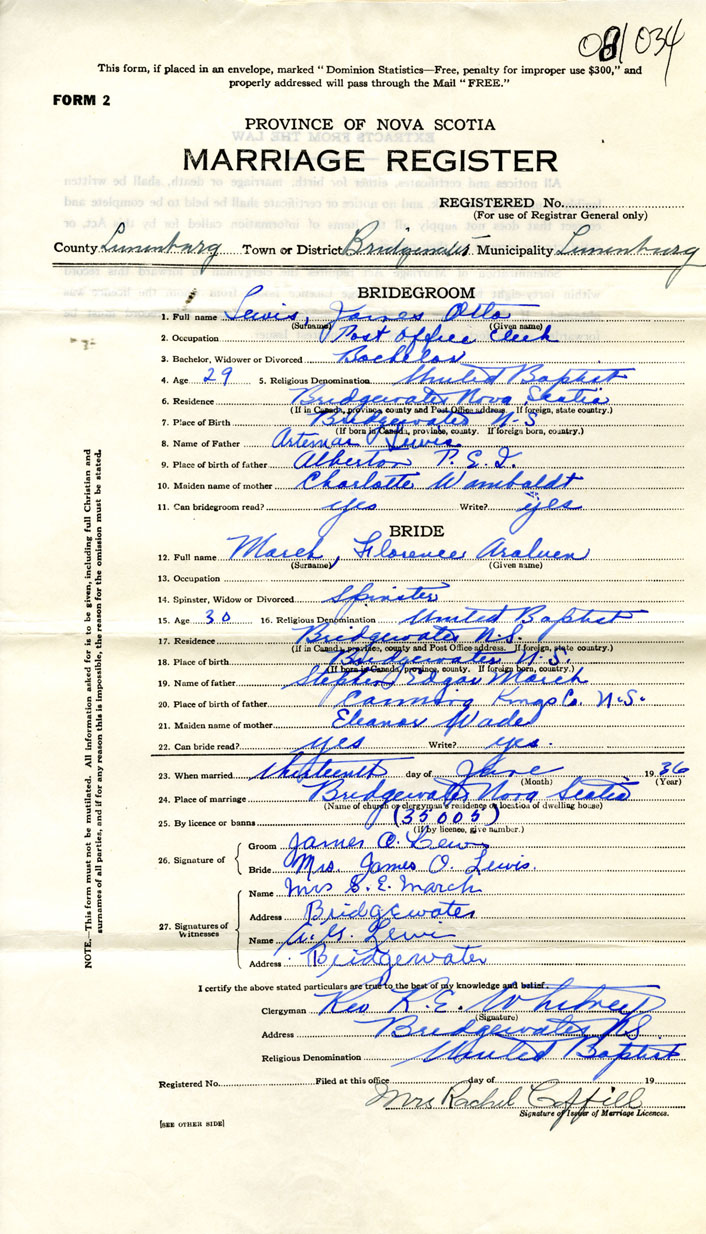 081034
This form, if placed in an envelope, marked "Dominion Statistics—Free, penalty for improper use $300," and
properly addressed will pass through the Mail "FREE."
FORM 2
PROVINCE OF NOVA SCOTIA
MARRIAGE REGISTER
REGISTERED No.
(For use of Registrar General only)
County Lunenburg Town or District Bridgewater Municipality Lunenburg
BRIDEGROOM
1. Full name Lewis, James Otto
(Surname) (Given name)
2. Occupation Post Office Clerk
3. Bachelor, Widower or Divorced Bachelor
4. Age 29 5. Religious Denomination United Baptist
6. Residence Bridgewater Nova Scotia
(If in Canada, province, county and Post Office address. If foreign, state country.)
7. Place of Birth Bridgewater N.S
(If born in Canada, province, county. If foreign born, country.)
8. Name of Father Artemas Lewis
9. Place of birth of father Alberton P.E.I.
10. Maiden name of mother Charlotte Wamboldt
11. Can bridegroom read? yes Write? yes
BRIDE
12. Full name March, Florence
(Surname) (Given name)
13. Occupation
14. Spinster, Widow or Divorced Spinster
15. Age 30 16. Religious Denomination United Baptist
17. Residence Bridgewater N.S.
(If in Canada, province, county and Post Office address. If foreign, state country.)
18. Place of birth Bridgewater N.S.
(If born in Canada, province, county. If foreign born, country.)
19. Name of father Stephen Edgar March
20. Place of birth of father Canning Kings Co. N.S.
21. Maiden name of mother Eleanor Wade
22. Can bride read? yes Write? yes.
23. When married thirteenth day of June 1936
(Month) (Year)
24. Place of marriage Bridgewater Nova Scotia
(Name of church or clergyman's residence or location of dwelling house)
25. By licence or banns (35005)
(If by licence, give number.)
26. Signature of
Groom James O. Lewis
Bride Mrs. James O. Lewis.
27. Signatures of Witnesses
Name Mrs S. E. March
Address Bridgewater
Name Lewis
Address Bridgewater
I certify the above stated particulars are true to the best of my knowledge and belief.
Clergyman Rev R. E. Whitney
(Signature)
Address Bridgewater N.S.
Religious Denomination United Baptist
Registered No. Filed at this office day of 19
Mrs Rachel Coffill
Signature of Issuer of Marriage Licences.
[SEE OTHER SIDE]
NOTE.—This form must not be mutilated. All information asked for is to be given, including full Christian and
surnames of all parties, and if for any reason this is impossible, the reason for the omission must be stated.